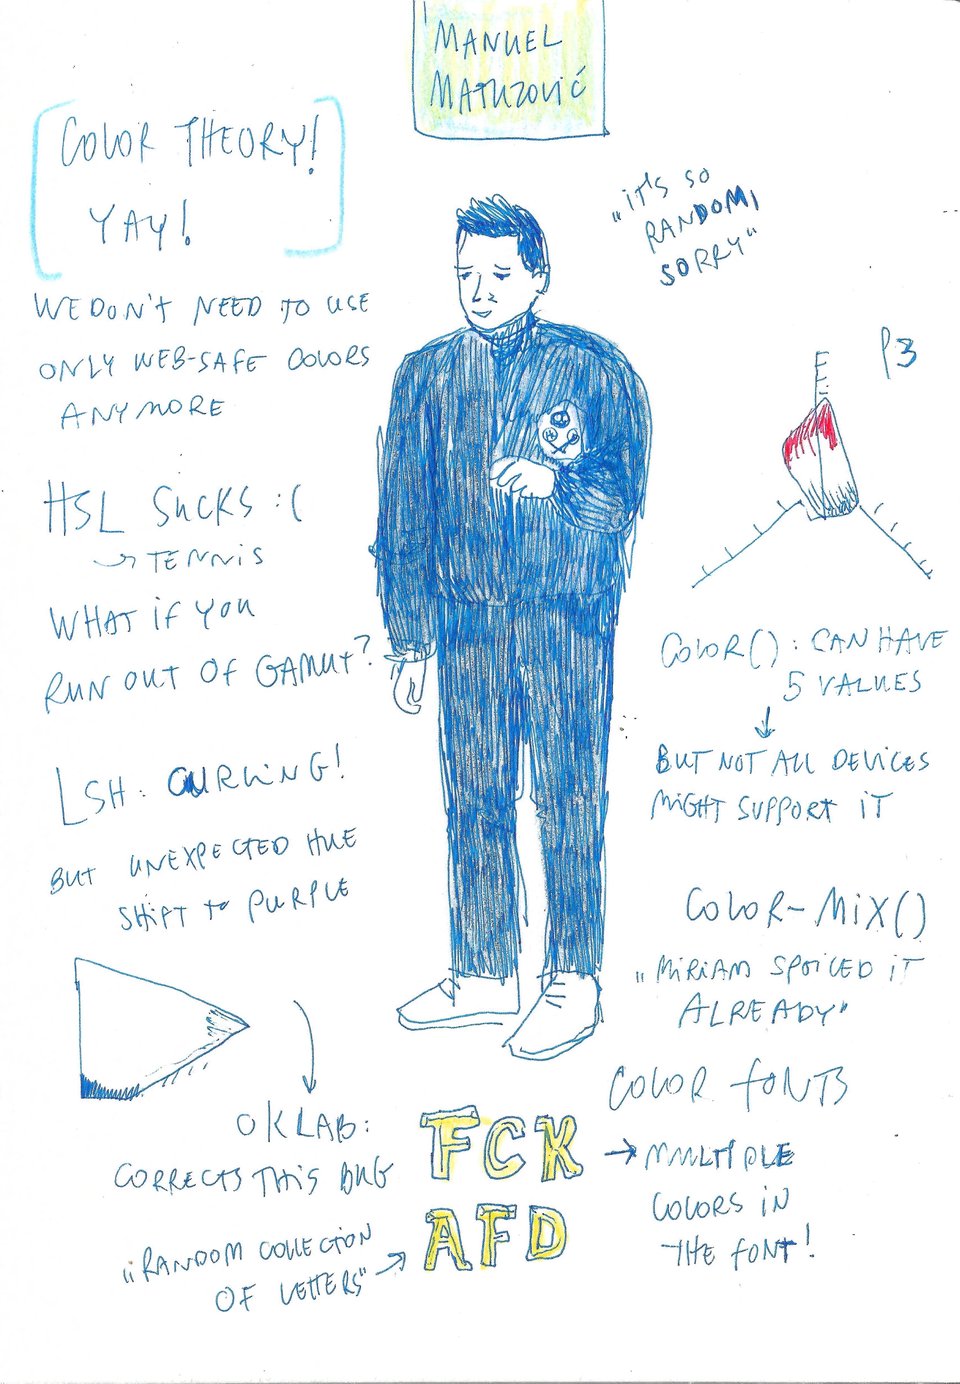 MANUEL
MATUZOVIĆ
COLOR THEORY!
YAY!
"IT'S SO
RANDOM,
SORRY"
WE DON'T NEED TO USE
ONLY WEB-SAFE COLORS
ANYMORE
P3
HSL SUCKS :(
TENNIS
WHAT IF YOU
RUN OUT OF GAMUT?
COLOR(): CAN HAVE
5 VALUES
BUT NOT ALL DEVICES
MIGHT SUPPORT IT
LSH: CURLING!
BUT UNEXPECTED HUE
SHIFT TO PURPLE
COLOR-MIX()
"MIRIAM SPOILED IT
ALREADY"
OKLAB:
CORRECTS THIS BUG
COLOR FONTS
→ MULTIPLE
COLORS IN
THE FONT!
FCK
AFD
"RANDOM COLLECTION
OF LETTERS" →